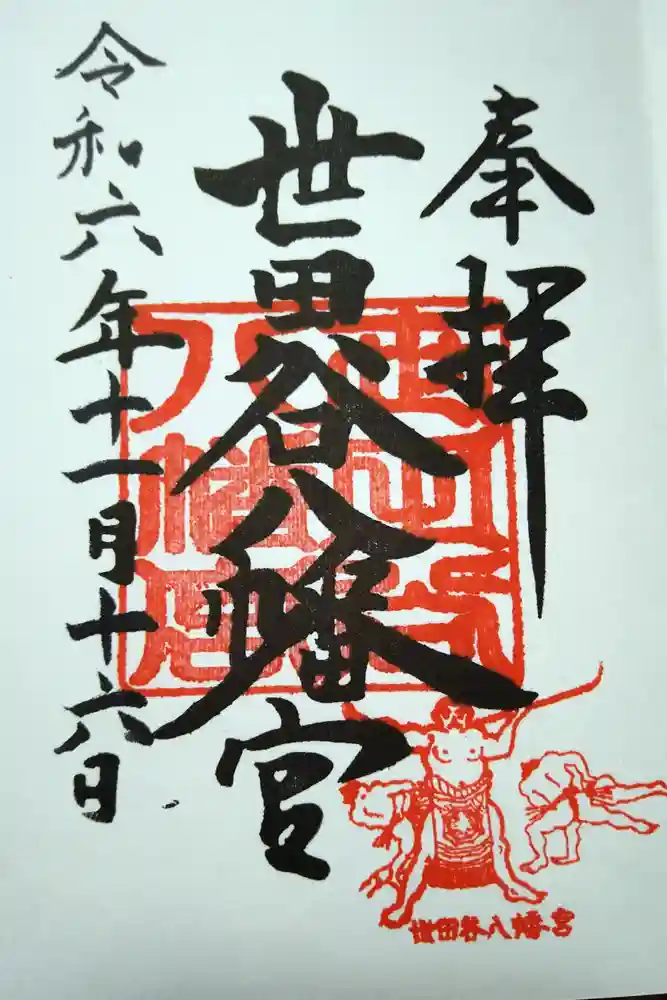 奉拝
世田谷八幡宮
令和六年十一月十六日
世田谷八幡宮